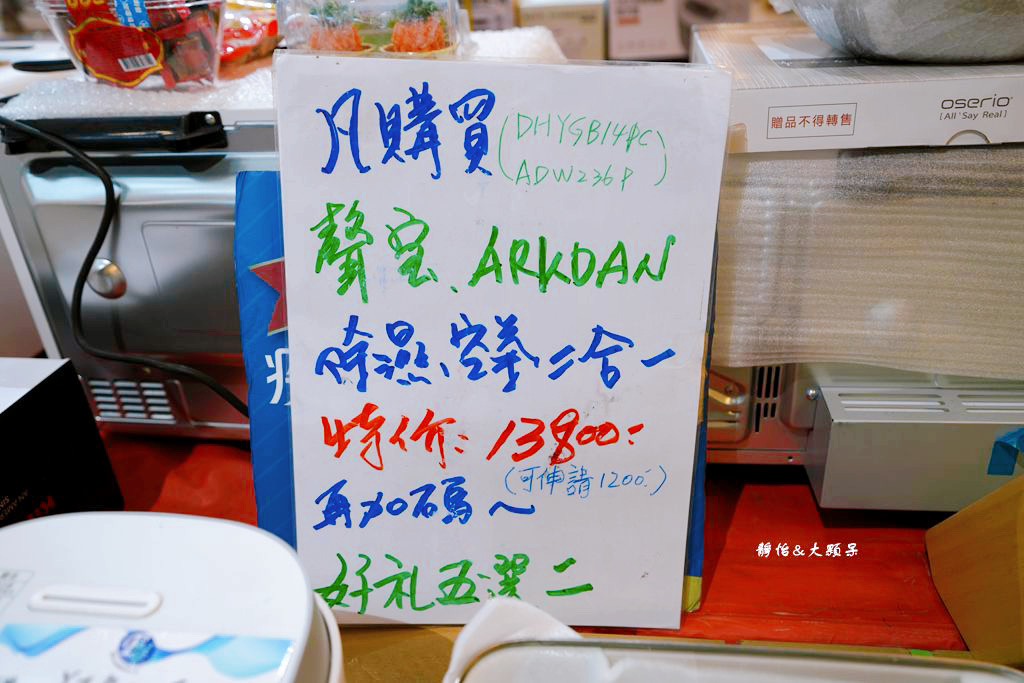 凡購買
(DHYGB14PC
ADW236P)
聲宝、ARKDAN
除濕、空萃二合一
特价:13800:
(可伸請1200:)
再加碼~
好礼五選二
oserio
[All 'Say Real]
贈品不得轉售
靜怡&大顆呆